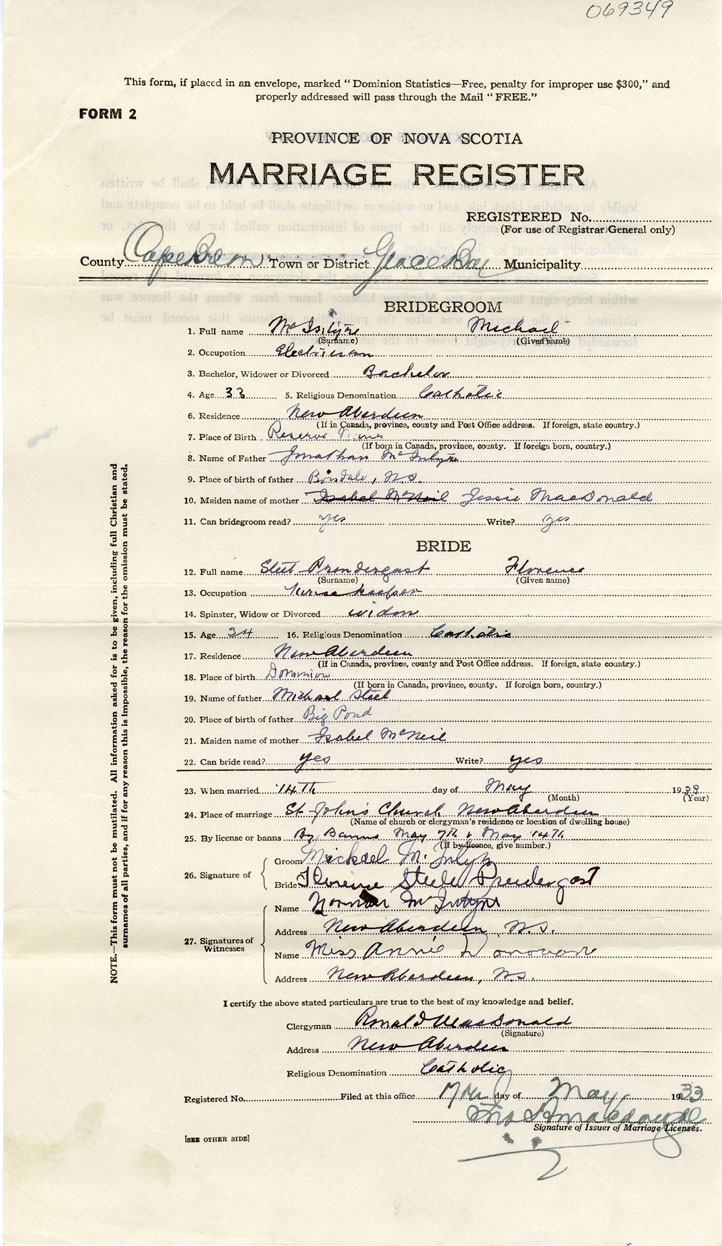 069349
This form, if placed in an envelope, marked "Dominion Statistics—Free, penalty for improper use $300," and
properly addressed will pass through the Mail "FREE."
FORM 2
PROVINCE OF NOVA SCOTIA
MARRIAGE REGISTER
REGISTERED No.
(For use of Registrar General only)
County Cape Breton Town or District Glace Bay Municipality
BRIDEGROOM
1. Full name McIntyre Michael
(Surname) (Given name)
2. Occupation Electrician
3. Bachelor, Widower or Divorced Bachelor
4. Age 33 5. Religious Denomination Catholic
6. Residence New Aberdeen
(If in Canada, province, county and Post Office address. If foreign, state country.)
7. Place of Birth Reserve Mines
(If born in Canada, province, county. If foreign born, country.)
8. Name of Father Jonathan McIntyre
9. Place of birth of father Boisdale, N.S.
10. Maiden name of mother Isabel McNeil Jessie MacDonald
11. Can bridegroom read? yes Write? yes
BRIDE
12. Full name Prendergast Florence
(Surname) (Given name)
13. Occupation housekeeper
14. Spinster, Widow or Divorced widow
15. Age 34 16. Religious Denomination Catholic
17. Residence New Aberdeen
(If in Canada, province, county and Post Office address. If foreign, state country.)
18. Place of birth Dominion
(If born in Canada, province, county. If foreign born, country.)
19. Name of father Michael Steel
20. Place of birth of father Big Pond
21. Maiden name of mother Isabel McNeil
22. Can bride read? yes Write? yes
23. When married 14th day of May 19
(Month) (Year)
24. Place of marriage St John's Church, New Aberdeen
(Name of church or clergyman's residence or location of dwelling house)
25. By license or banns By Banns May 7th & May 14th
(If by licence, give number.)
26. Signature of
Groom Michael McIntyre
Bride Florence Steele Prendergast
27. Signatures of Witnesses
Name Norman McIntyre
Address New Aberdeen, N.S.
Name Miss Annie Donovan
Address New Aberdeen, N.S.
I certify the above stated particulars are true to the best of my knowledge and belief.
Clergyman Ronald MacDonald
(Signature)
Address New Aberdeen
Religious Denomination Catholic
Registered No. Filed at this office day of May 1933
Signature of Issuer of Marriage Licenses.
[SEE OTHER SIDE]
NOTE.—This form must not be mutilated. All information asked for is to be given, including full Christian and
surnames of all parties, and if for any reason this is impossible, the reason for the omission must be stated.